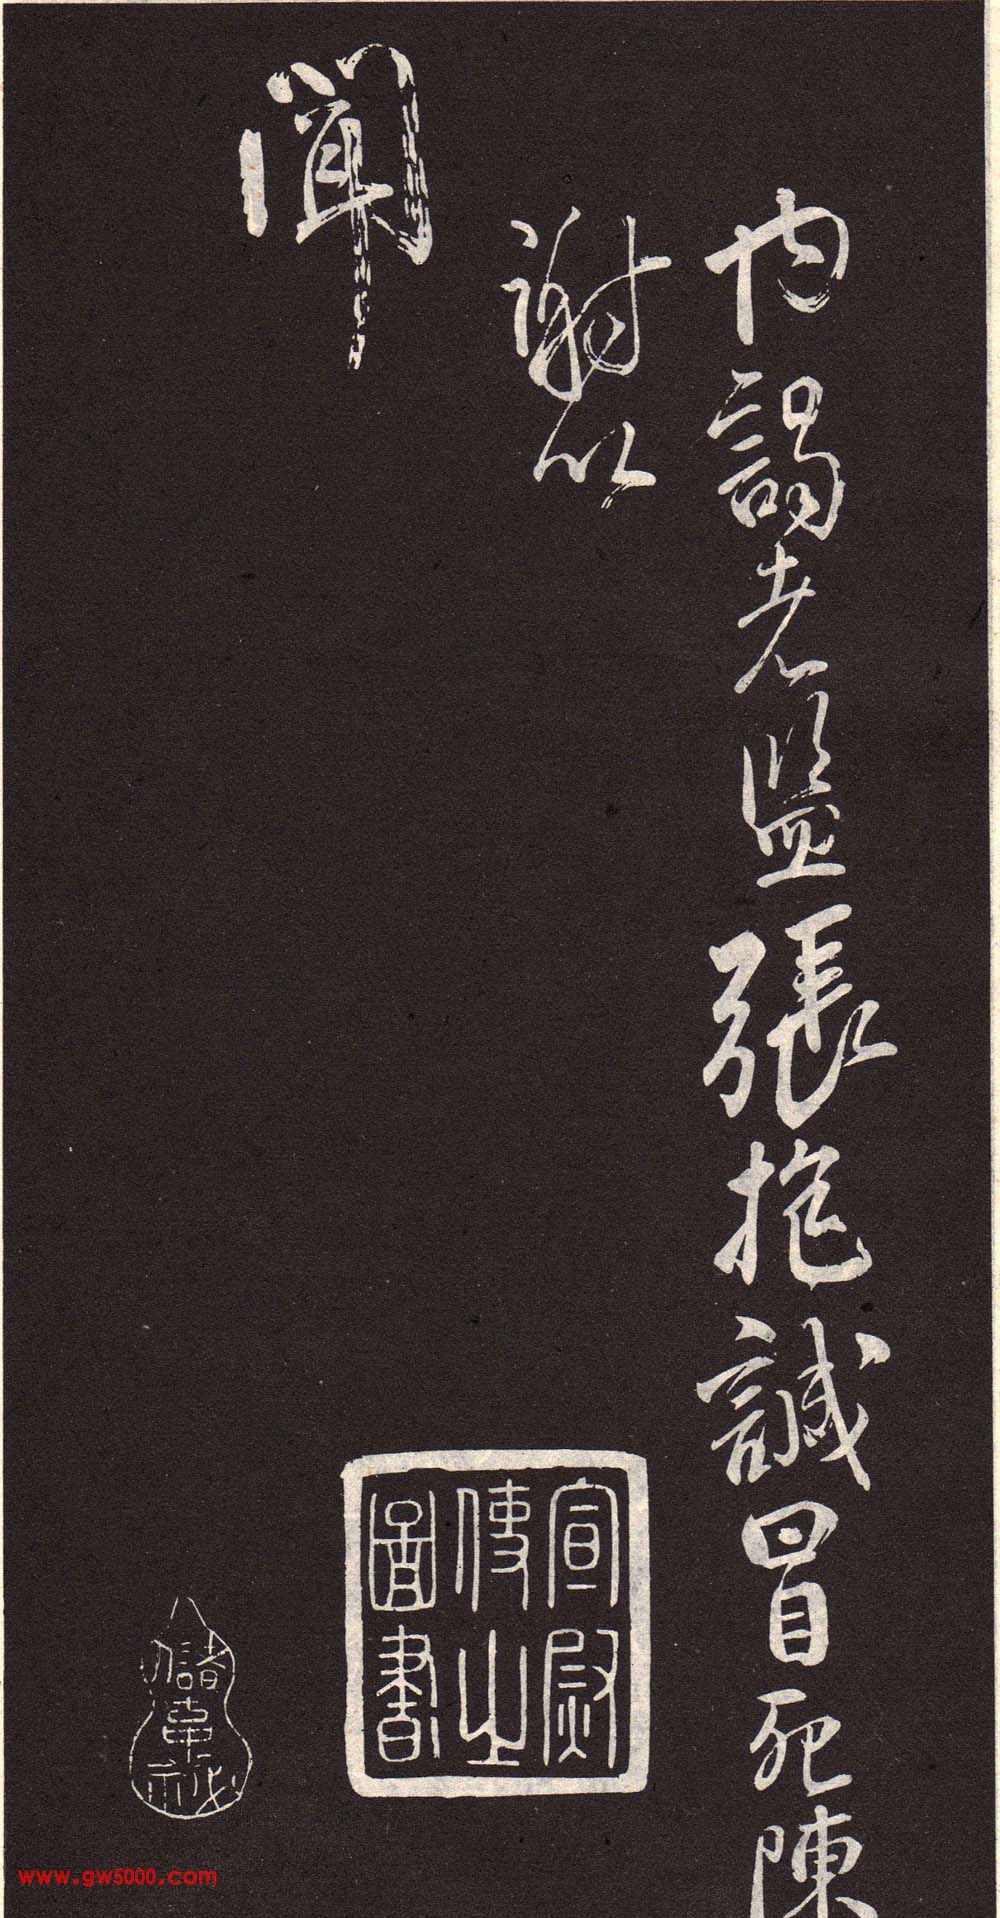 內謁者監張抱誠冒死陳
謝以
聞
宣慰
使之
圖書
www.gw5000.com